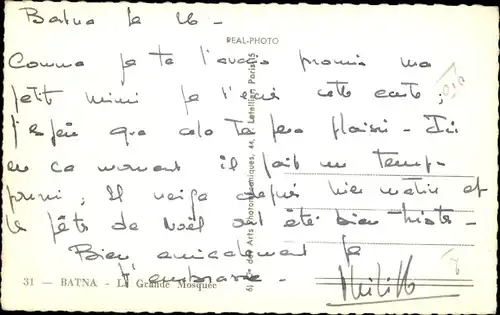 Batna le 26 -
REAL-PHOTO
Comme je te l'avais promis ma
petit mimi je t'envoi cette carte,
j'espère que cela te fera plaisir - Ici
en ce moment il fait un temps
pourri, Il neige depuis hier matin et
les fêtes de Noël ont été bien triste -
Bien amicalement je
t'embrasse -
31 — BATNA - La Grande Mosquée
des Arts Photomécaniques, 44, r. Letellier, Paris-15